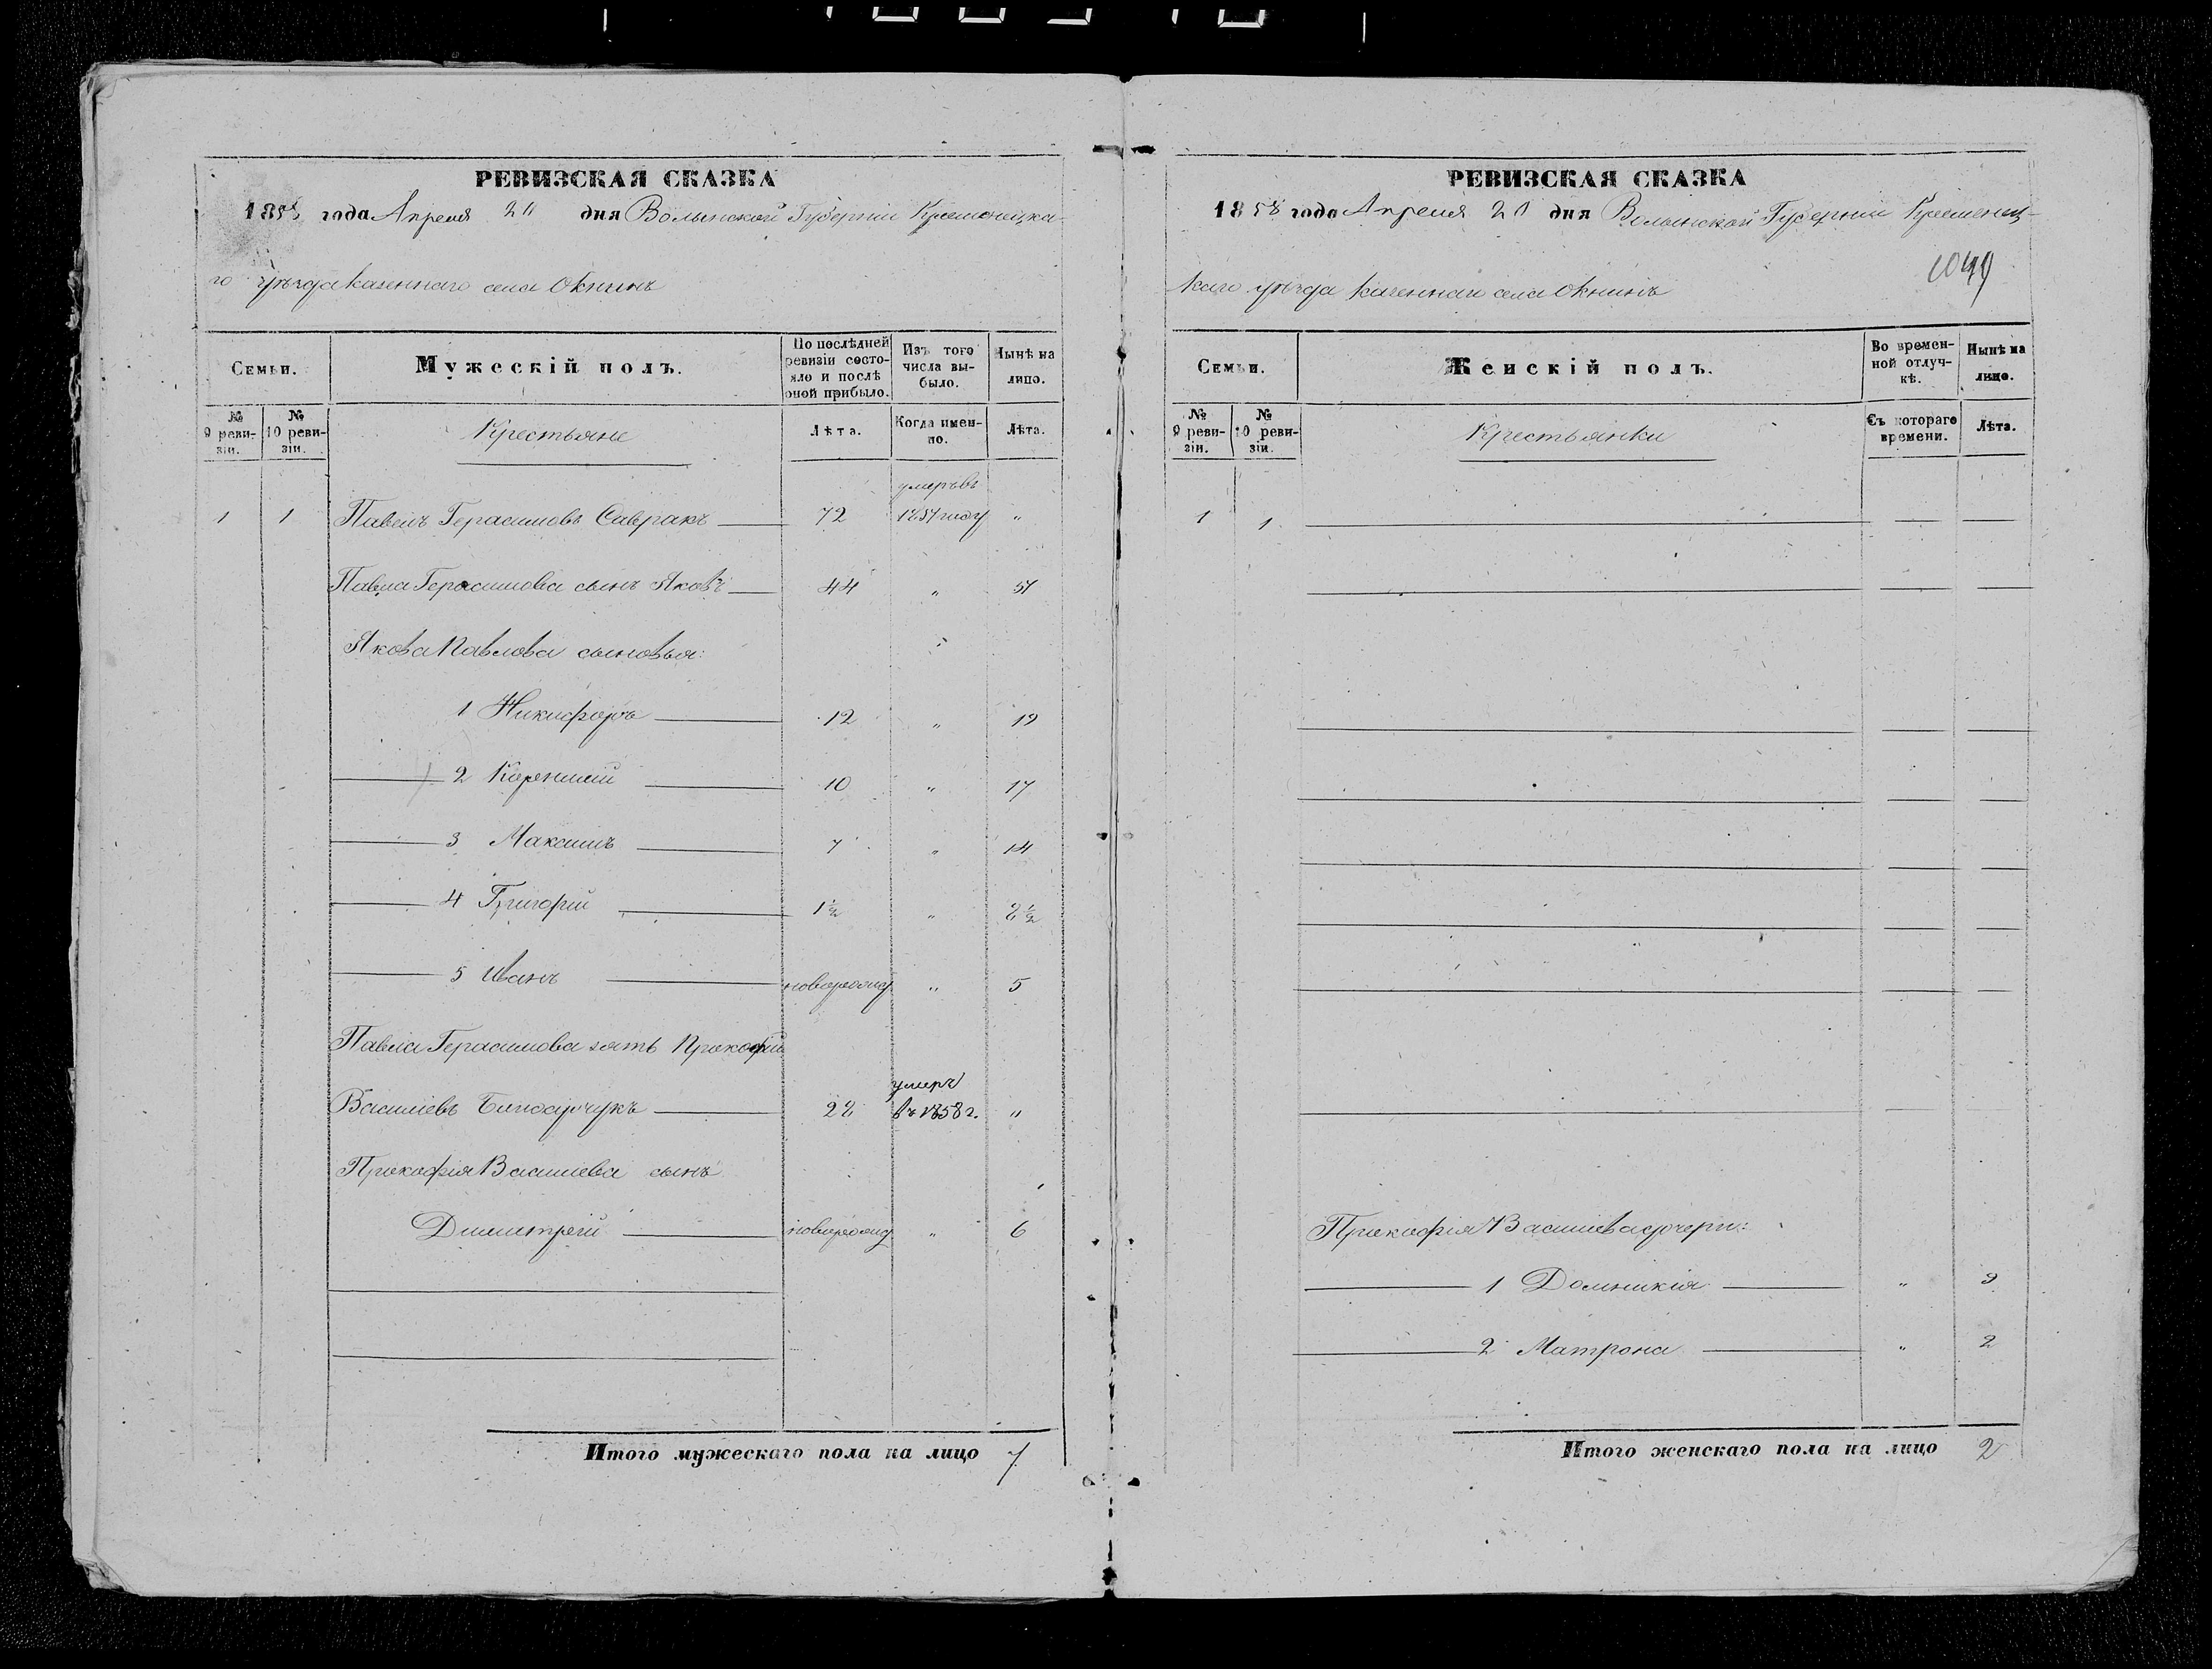 РЕВИЗСКАЯ СКАЗКА
1858 года Апреля 20 дня Волынской Губерніи Кременецка-
го уѣзда казеннаго села Окнинъ
Семьи.
Мужескій полъ.
По послѣдней ревизіи состояло и послѣ оной прибыло.
Изъ того числа выбыло.
Нынѣ на лицо.
№ 9 реви-зіи.
№ 10 реви-зіи.
Крестьяне
Лѣта.
Когда имен-но.
Лѣта.
умеръ въ
1 1 Павелъ Герасимовъ Савракъ 72 1857 году "
Павла Герасимова сынъ Яковъ 44 " 51
Якова Павлова сыновья:
1 Никифоръ 12 " 19
2 Корнилий 10 " 17
3 Максимъ 7 " 14
4 Григорій 1½ " 8½
5 Иванъ новорожд. " 5
Павла Герасимова зять Прокофій
умеръ
Василіевъ 22 въ 1858 г. "
Прокофія Василіева сынъ
Димитрій новорожд. " 6
Итого мужескаго пола на лицо 7
РЕВИЗСКАЯ СКАЗКА
1858 года Апреля 20 дня Волынской Губерніи Кременец-
каго уѣзда казеннаго села Окнинъ
1049
Семьи.
Женскій полъ.
Во времен-ной отлуч-кѣ.
Нынѣ на лицо.
№ 9 реви-зіи.
№ 10 реви-зіи.
Крестьянки
Съ котораго времени.
Лѣта.
1 1
Прокофія Василіева дочери:
1 Домникія " 9
2 Матрона " 2
Итого женскаго пола на лицо 2